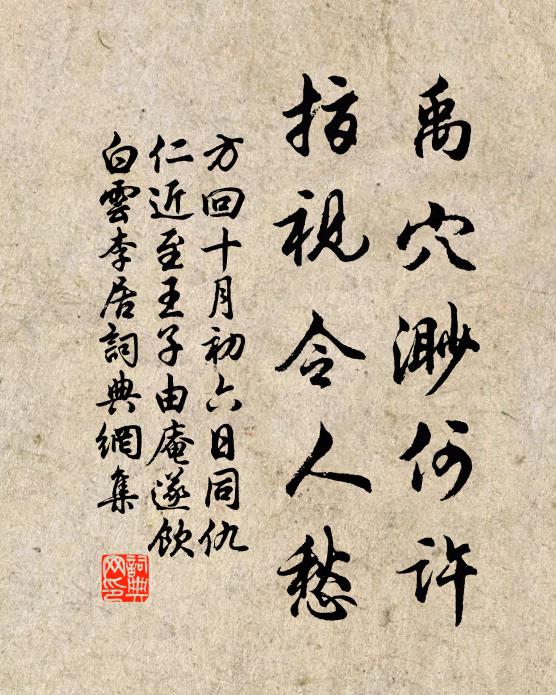 禹穴渺何許
指視令人愁
方回十月初六日同仇
仁近至王子由庵遂飲
白雲李居詞典網集
詞典网印